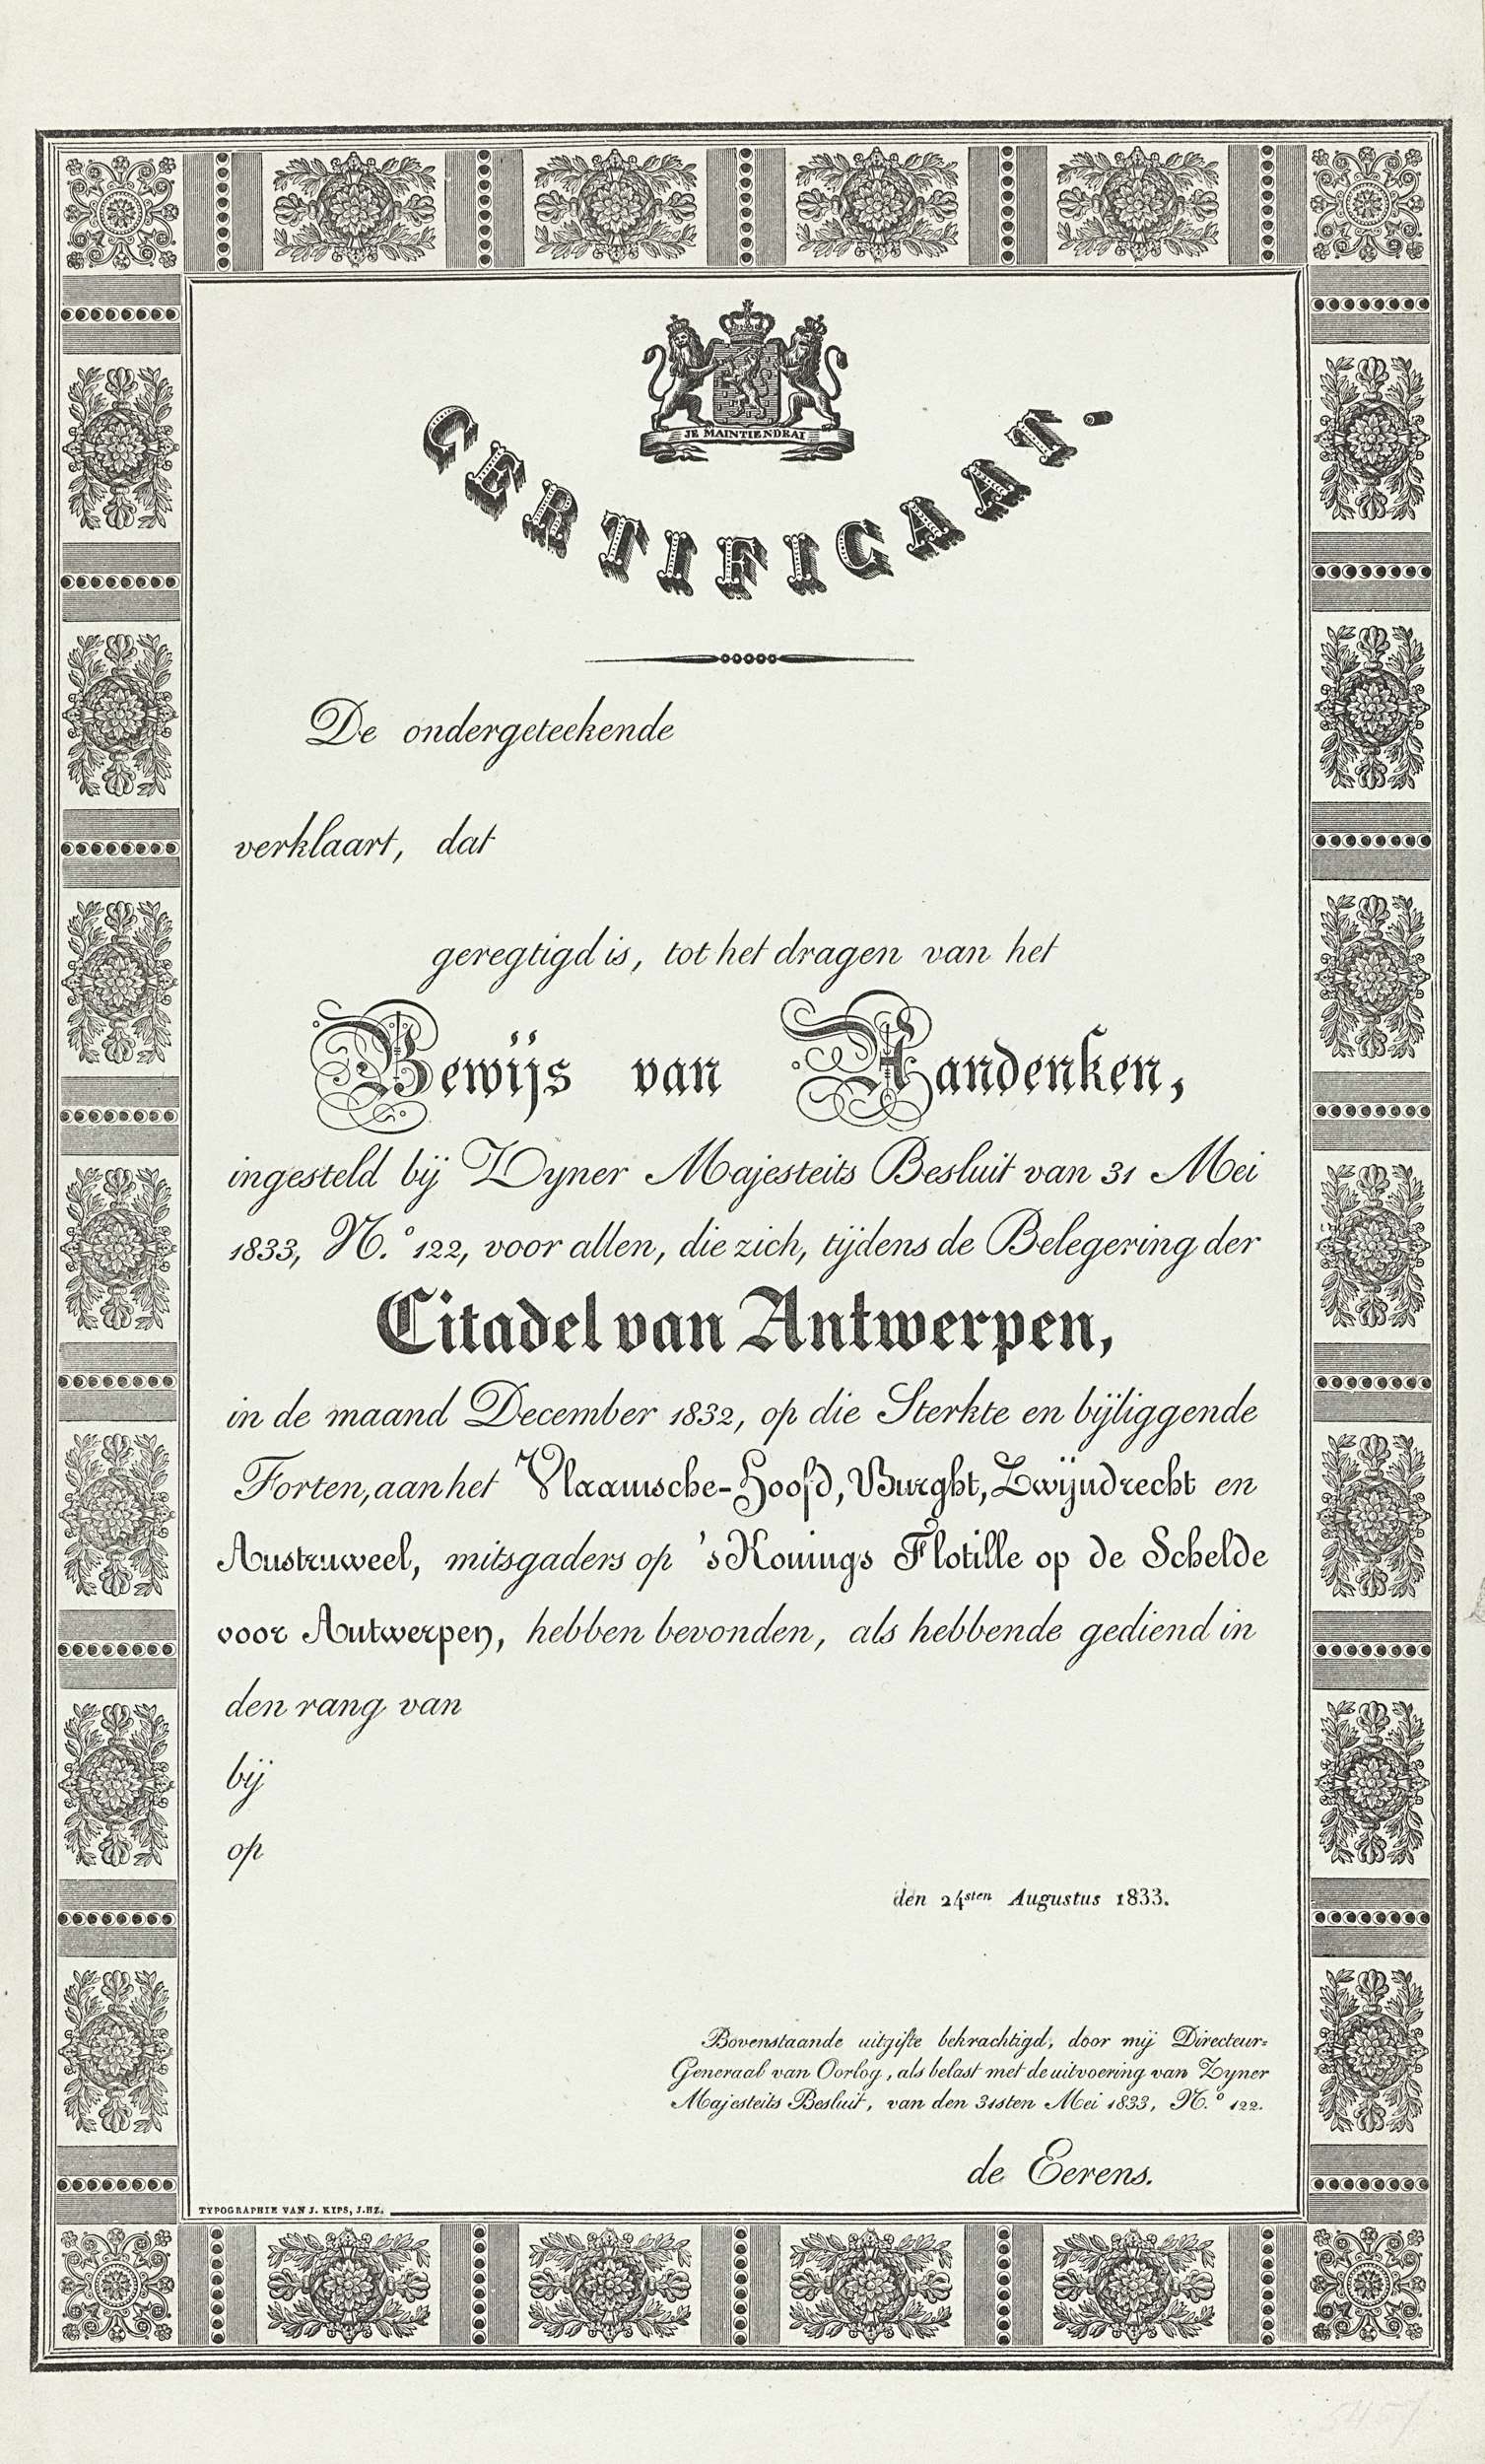 JE MAINTIENDRAI
CERTIFICAAT.
De ondergeteekende
verklaart, dat
geregtigd is, tot het dragen van het
Bewijs van Aandenken,
ingesteld bij Zyner Majesteits Besluit van 31 Mei
1833, N.º 122, voor allen, die zich, tijdens de Belegering der
Citadel van Antwerpen,
in de maand December 1832, op die Sterkte en bijliggende
Forten, aan het Vlaamsche-Hoofd, Burght, Zwijndrecht en
Austruweel, mitsgaders op 's Konings Flotille op de Schelde
voor Antwerpen, hebben bevonden, als hebbende gediend in
den rang van
bij
op
den 24sten Augustus 1833.
Bovenstaande uitgifte bekrachtigd, door mij Directeur=
Generaal van Oorlog, als belast met de uitvoering van Zyner
Majesteits Besluit, van den 31sten Mei 1833, N.º 122.
de Eerens.
TYPOGRAPHIE VAN J. KIPS, J.HZ.